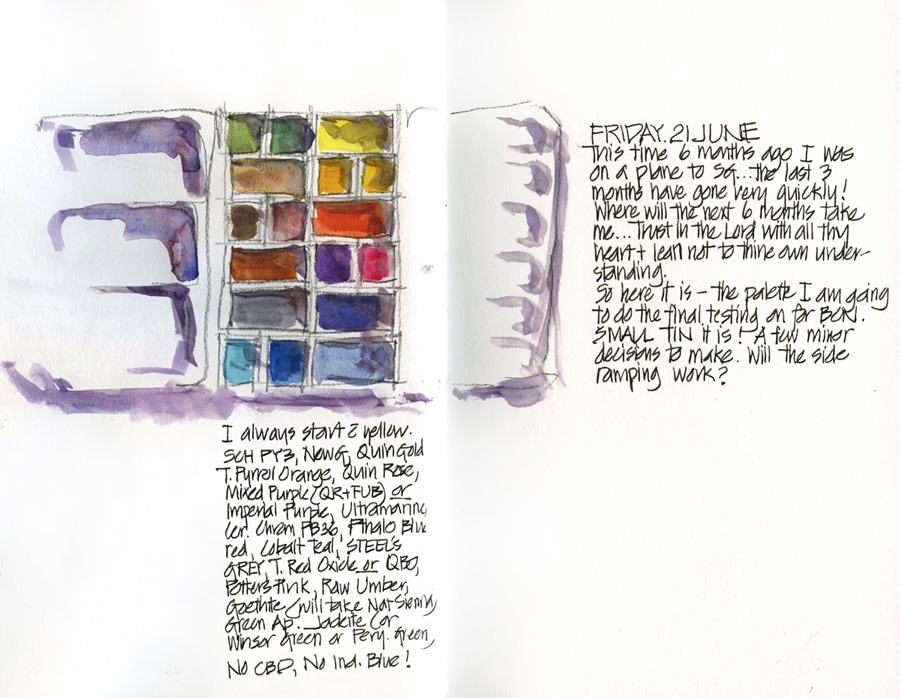 I always start c̄ yellow.
SCH PY3, NewG, Quin Gold
T. Pyrrol Orange, Quin Rose,
Mixed Purple (QR+FUB) or
Imperial Purple, Ultramarine,
Cer. Chrom PB36, Pthalo Blue
red, Cobalt Teal, STEEL'S
GREY, T. Red Oxide or QBO,
Potters Pink, Raw Umber,
Goethite (will take Nat Sienna)
Green Ap. Jadeite (or
Winsor Green or Pery. Green,
No CBD, No Ind. Blue!
FRIDAY. 21 JUNE
This time 6 months ago I was
on a plane to SG...the last 3
months have gone very quickly!
Where will the next 6 months take
me... Trust in the Lord with all thy
heart + lean not to thine own under-
standing.
So here it is – the palette I am going
to do the final testing on for
SMALL TIN it is! A few minor
decisions to make. Will the side
ramping work?